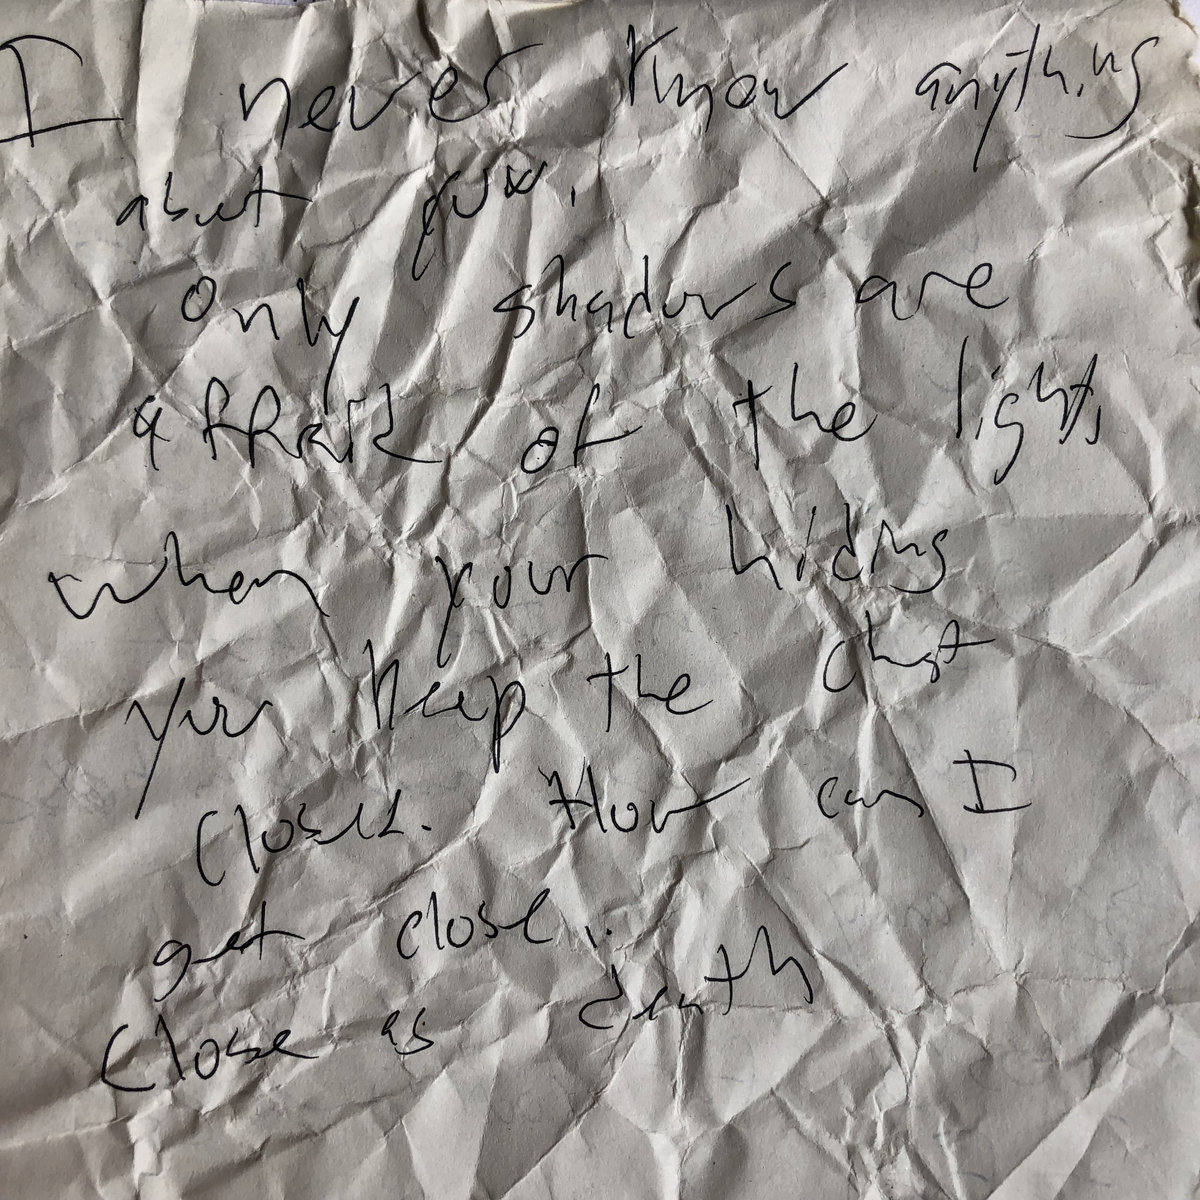 I never know anything
about you,
only shadows are
affraid of the light,
when your hiding
you keep the chest
closed. How can I
get close,
close as death